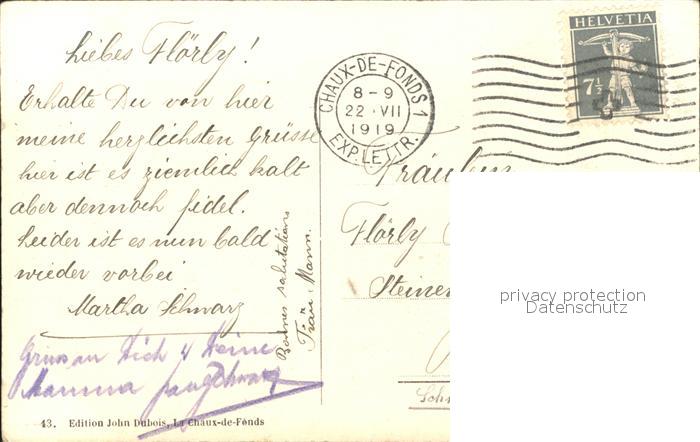 Liebes Flörly!
Erhalte Du von hier
meine herzlichsten Grüsse
hier ist es ziemlich kalt
aber dennoch fidel.
Leider ist es nun bald
wieder vorbei
Martha Schwarz
Gruss an Dich & Deine
Mamma
Bonnes salutations
Frau Mann.
43. Edition John Dubois, La Chaux-de-Fonds
CHAUX-DE-FONDS 1
8-9
22·VII
1919
EXP. LETTR.
HELVETIA
7½
Fräulein
Flörly
Steinen
Sch
privacy protection
Datenschutz